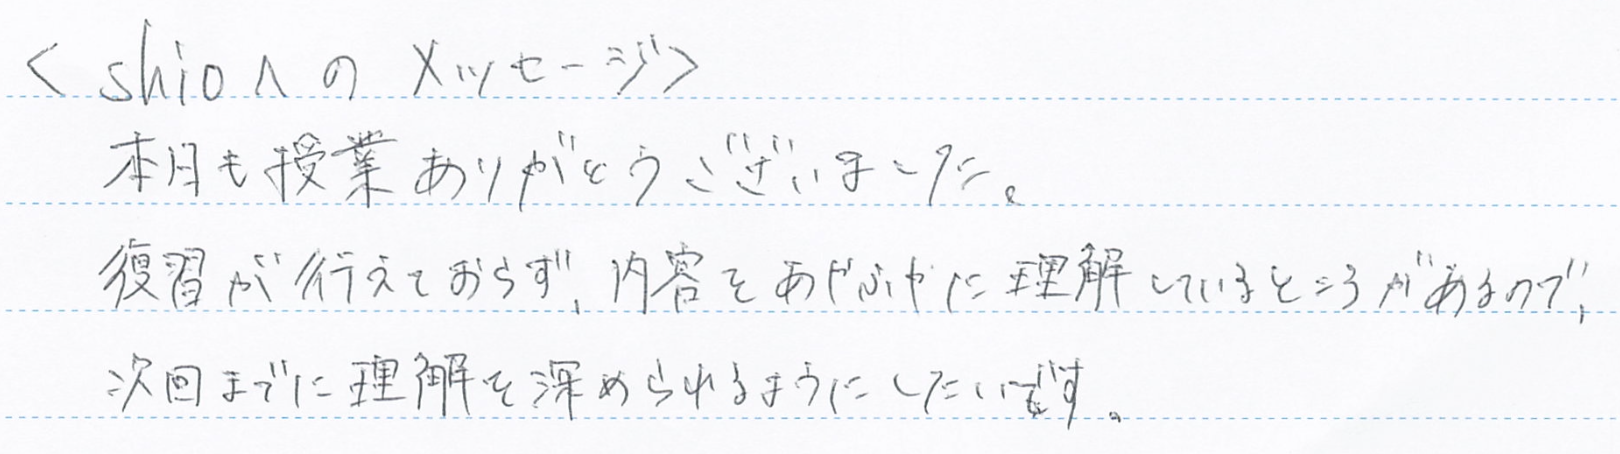 <shioへのメッセージ>
本日も授業ありがとうございました。
復習が行えておらず、内容をあやふやに理解しているところがあるので、
次回までに理解を深められるようにしたいです。